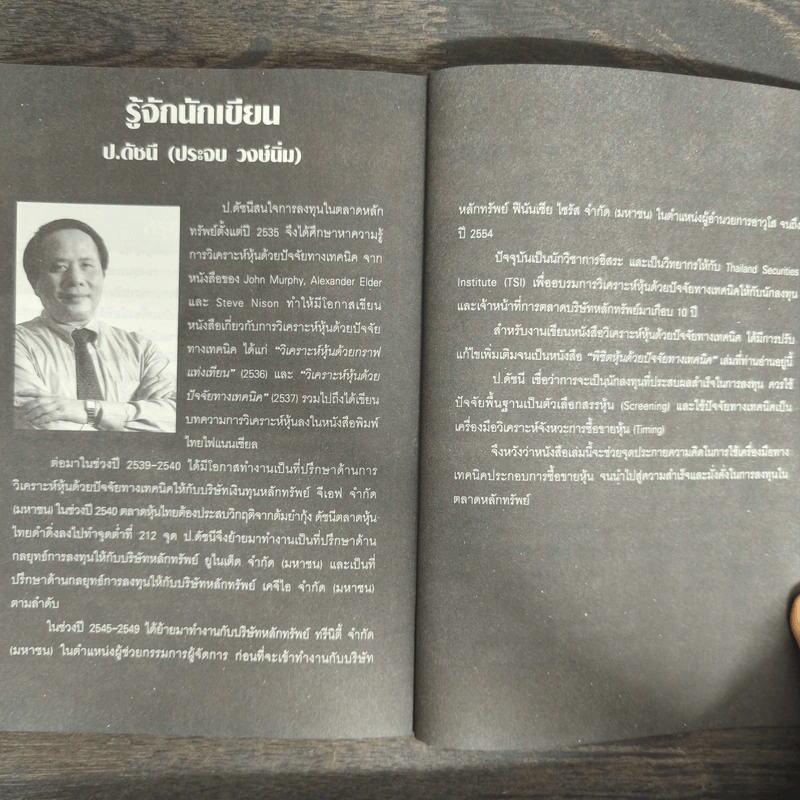 รู้จักนักเขียน
ป.ดัชนี (ประจบ วงษ์นิ่ม)
ป.ดัชนีสนใจการลงทุนในตลาดหลัก
ทรัพย์ตั้งแต่ปี 2535 จึงได้ศึกษาหาความรู้
การวิเคราะห์หุ้นด้วยปัจจัยทางเทคนิค จาก
หนังสือของ John Murphy, Alexander Elder
และ Steve Nison ทำให้มีโอกาสเขียน
หนังสือเกี่ยวกับการวิเคราะห์หุ้นด้วยปัจจัย
ทางเทคนิค ได้แก่ "วิเคราะห์หุ้นด้วยกราฟ
แท่งเทียน" (2536) และ "วิเคราะห์หุ้นด้วย
ปัจจัยทางเทคนิค" (2537) รวมไปถึงได้เขียน
บทความการวิเคราะห์หุ้นลงในหนังสือพิมพ์
ไทยไฟแนนเชียล
ต่อมาในช่วงปี 2539-2540 ได้มีโอกาสทำงานเป็นที่ปรึกษาด้านการ
วิเคราะห์หุ้นด้วยปัจจัยทางเทคนิคให้กับบริษัทเงินทุนหลักทรัพย์ จีเอฟ จำกัด
(มหาชน) ในช่วงปี 2540 ตลาดหุ้นไทยต้องประสบวิกฤติจากต้มยำกุ้ง ดัชนีตลาดหุ้น
ไทยดำดิ่งลงไปทำจุดต่ำที่ 212 จุด ป.ดัชนีจึงย้ายมาทำงานเป็นที่ปรึกษาด้าน
กลยุทธ์การลงทุนให้กับบริษัทหลักทรัพย์ ยูไนเต็ด จำกัด (มหาชน) และเป็นที่
ปรึกษาด้านกลยุทธ์การลงทุนให้กับบริษัทหลักทรัพย์ เคจีไอ จำกัด (มหาชน)
ตามลำดับ
ในช่วงปี 2545-2549 ได้ย้ายมาทำงานกับบริษัทหลักทรัพย์ ทรีนิตี้ จำกัด
(มหาชน) ในตำแหน่งผู้ช่วยกรรมการผู้จัดการ ก่อนที่จะเข้าทำงานกับบริษัท
หลักทรัพย์ ฟินันเซีย ไซรัส จำกัด (มหาชน) ในตำแหน่งผู้อำนวยการอาวุโส จนถึง
ปี 2554
ปัจจุบันเป็นนักวิชาการอิสระ และเป็นวิทยากรให้กับ Thailand Securities
Institute (TSI) เพื่ออบรมการวิเคราะห์หุ้นด้วยปัจจัยทางเทคนิคให้กับนักลงทุน
และเจ้าหน้าที่การตลาดบริษัทหลักทรัพย์มาเกือบ 10 ปี
สำหรับงานเขียนหนังสือวิเคราะห์หุ้นด้วยปัจจัยทางเทคนิค ได้มีการปรับ
แก้ไขเพิ่มเติมจนเป็นหนังสือ "พิชิตหุ้นด้วยปัจจัยทางเทคนิค" เล่มที่ท่านอ่านอยู่นี้
ป.ดัชนี เชื่อว่าการจะเป็นนักลงทุนที่ประสบผลสำเร็จในการลงทุน ควรใช้
ปัจจัยพื้นฐานเป็นตัวเลือกสรรหุ้น (Screening) และใช้ปัจจัยทางเทคนิคเป็น
เครื่องมือวิเคราะห์จังหวะการซื้อขายหุ้น (Timing)
จึงหวังว่าหนังสือเล่มนี้จะช่วยจุดประกายความคิดในการใช้เครื่องมือทาง
เทคนิคประกอบการซื้อขายหุ้น จนนำไปสู่ความสำเร็จและมั่งคั่งในการลงทุนใน
ตลาดหลักทรัพย์